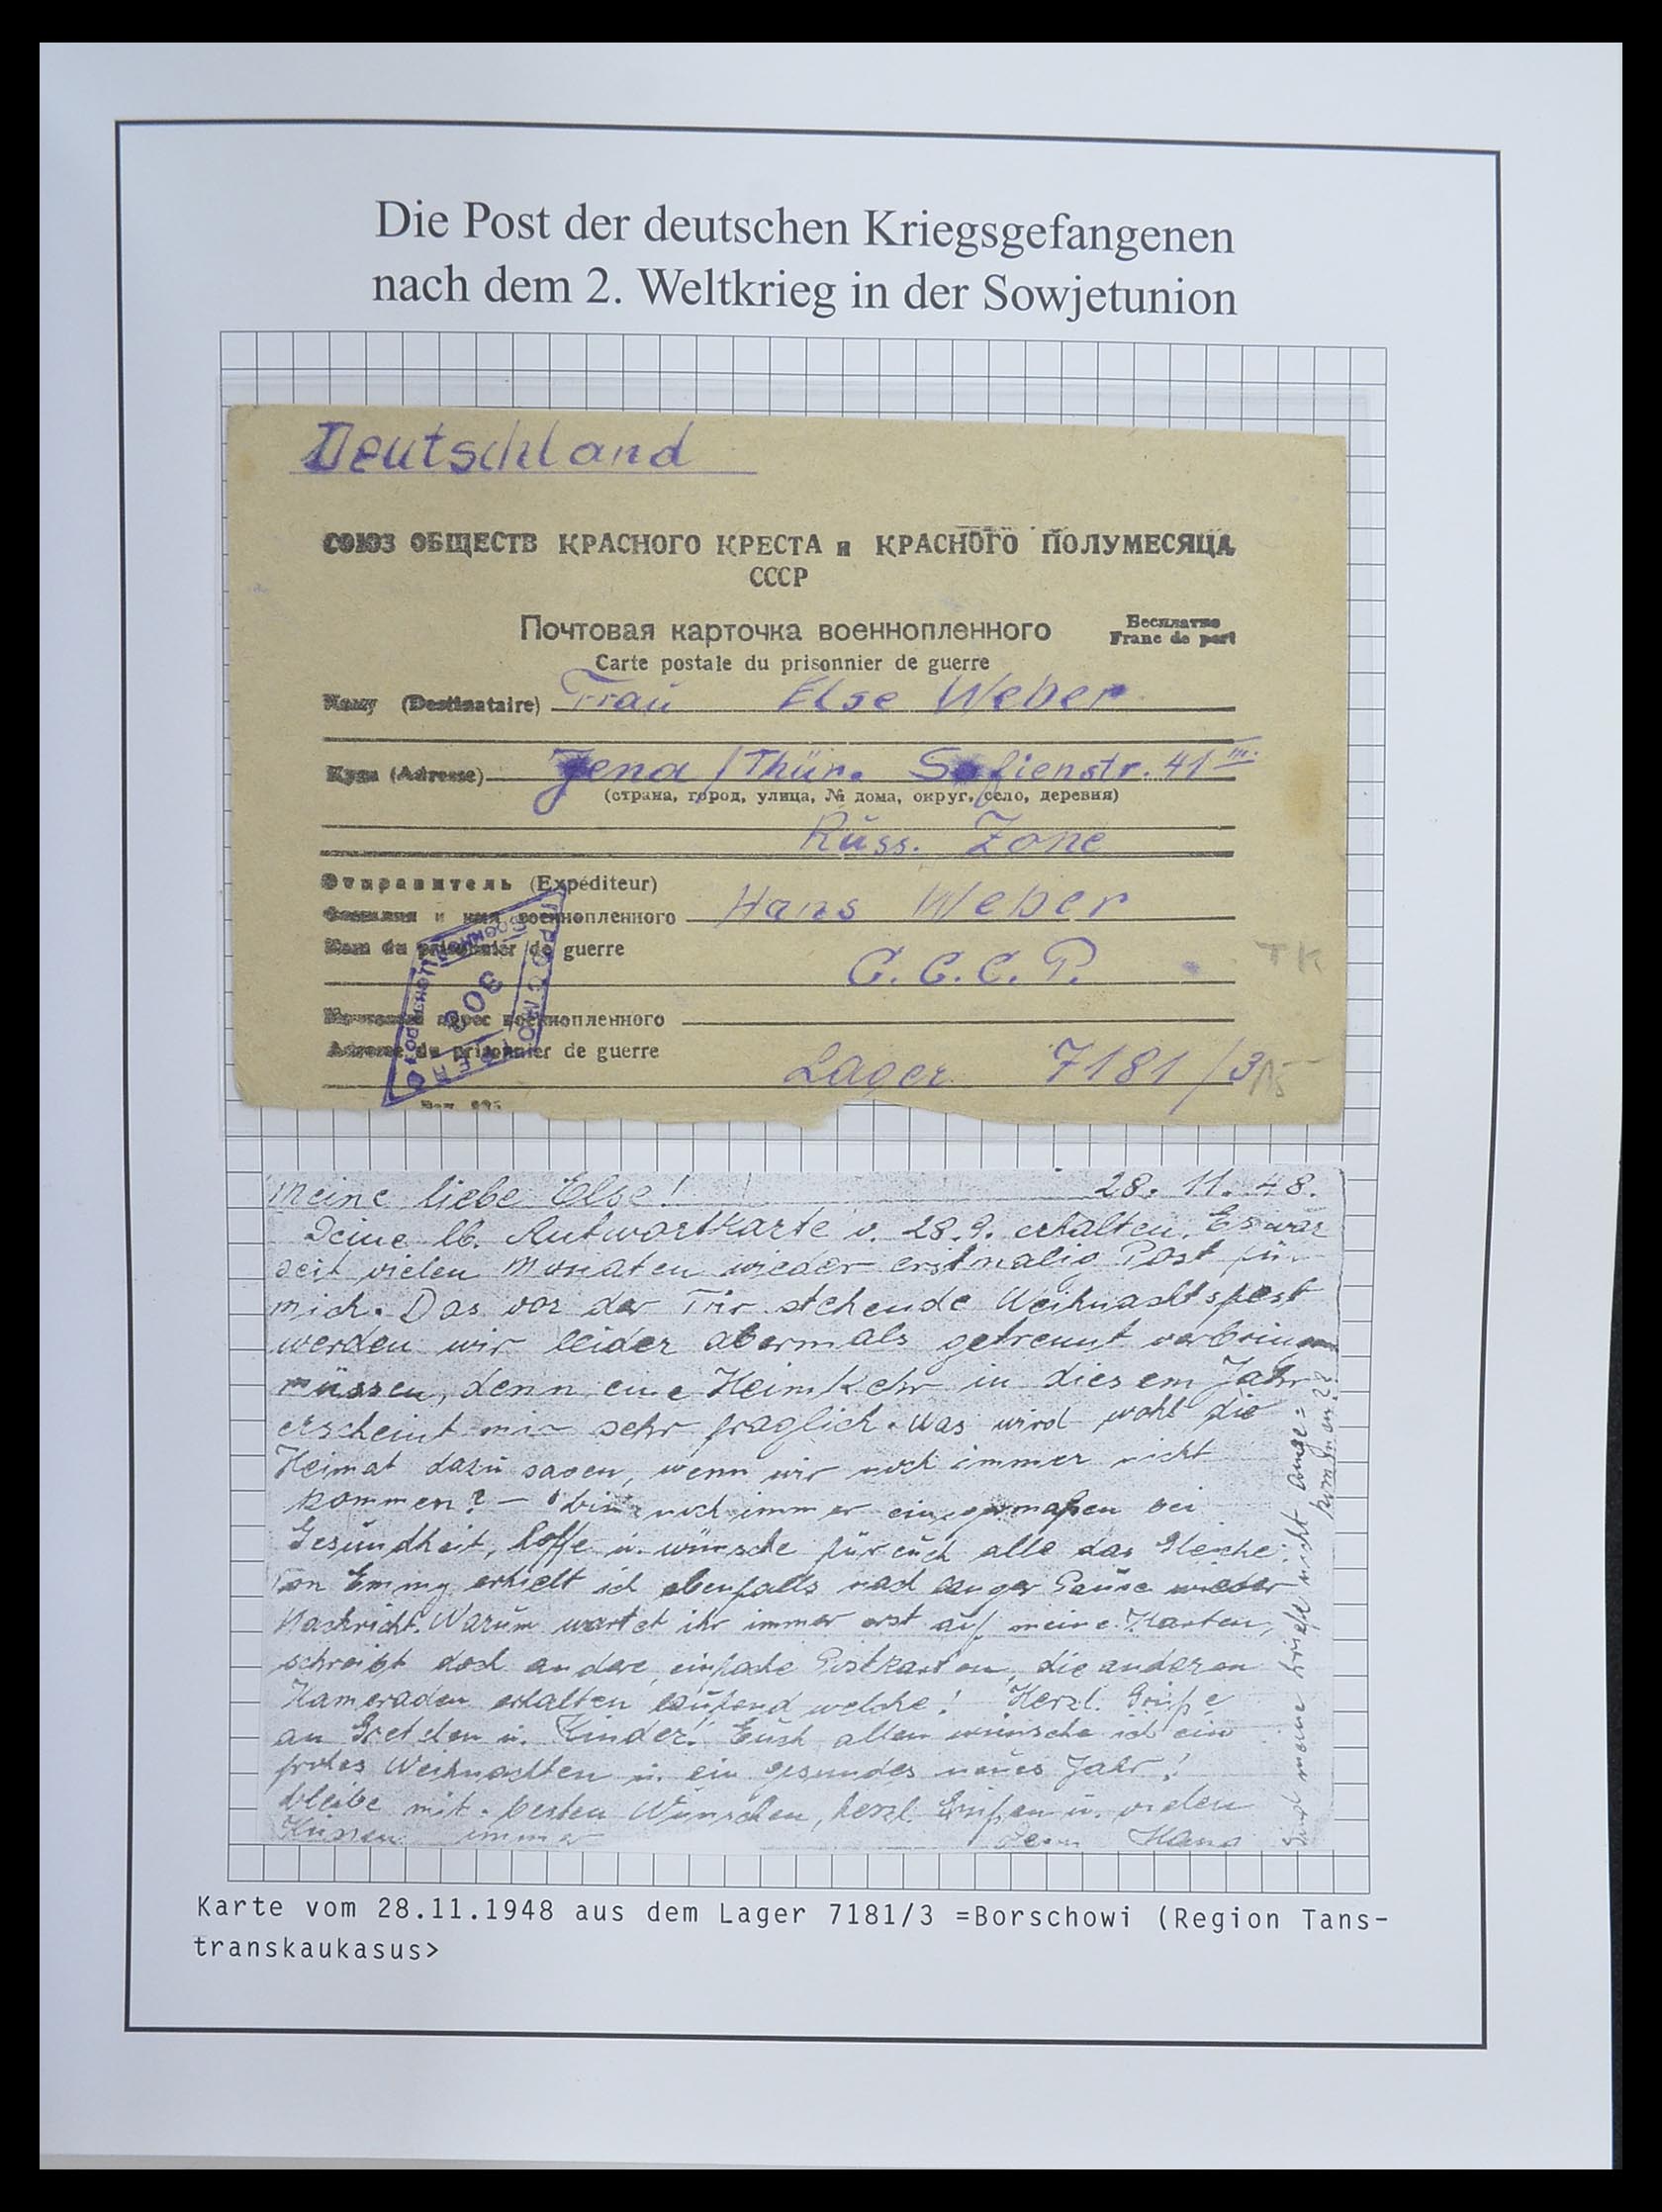 Die Post der deutschen Kriegsgefangenen
nach dem 2. Weltkrieg in der Sowjetunion
Deutschland
СОЮЗ ОБЩЕСТВ КРАСНОГО КРЕСТА и КРАСНОГО ПОЛУМЕСЯЦА
СССР
Почтовая карточка военнопленного
Бесплатно
Franc de port
Carte postale du prisonnier de guerre
Кому (Destinataire) Frau Else Weber
Куда (Adresse) Jena / Thür. Sofienstr. 41 III.
(страна, город, улица, № дома, округ, село, деревня)
Russ. Zone
Отправитель (Expéditeur)
Фамилия и имя военнопленного Hans Weber
Nom du prisonnier de guerre
C.C.C.P.
TK
Почтовый адрес военнопленного
Adresse du prisonnier de guerre
Lager 7181/3
15
308
Meine liebe Else! 28. 11. 48.
Deine lb. Antwortkarte v. 28.9. erhalten. Es war
seit vielen Monaten wieder erstmalig Post für
mich. Das vor der Tür stehende Weihnachtsfest
werden wir leider abermals getrennt verbringen
müssen, denn eine Heimkehr in diesem Jahr
erscheint mir sehr fraglich. Was wird wohl die
Heimat dazu sagen, wenn wir noch immer nicht
kommen? – bin noch immer einigermaßen bei
Gesundheit, hoffe u. wünsche für euch alle das Gleiche
von Emmy erhielt ich ebenfalls nach langer Pause wieder
Nachricht. Warum wartet ihr immer erst auf meine Karten,
schreibt doch andere einfache Postkarten, die anderen
Kameraden erhalten laufend welche! Herzl. Grüße
an Gretchen u. Kinder! Euch allen wünsche ich ein
frohes Weihnachten u. ein gesundes neues Jahr!
bleibe mit besten Wünschen, herzl. Grüßen u. vielen
Küssen immer Dein Hans
Sind meine Briefe nicht ange=
kommen??
Karte vom 28.11.1948 aus dem Lager 7181/3 =Borschowi (Region Tans-
transkaukasus>